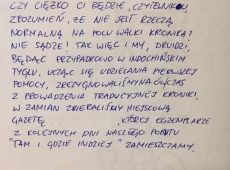 CZY CIĘŻKO CI BĘDZIE, CZYTELNIKU,
ZROZUMIEĆ, ŻE NIE JEST RZECZĄ
NORMALNĄ NA POLU WALKI KRONIKA?
NIE SĄDZĘ! TAK WIĘC I MY, DRUDZI,
BĘDĄC PRZYPADKOWO W INDOCHIŃSKIM
TYGLU, UCZĄC SIĘ UDZIELANIA PIERWSZEJ
POMOCY, ZREZYGNOWALIŚMY NAÓWCZAS
Z PROWADZENIA TRADYCYJNEJ KRONIKI,
W ZAMIAN ZBIERALIŚMY MIEJSCOWĄ
GAZETĘ ..., KTÓREJ EGZEMPLARZE
Z KOLEJNYCH DNI NASZEGO POBYTU
"TAM I GDZIE INDZIEJ" ZAMIESZCZAMY.